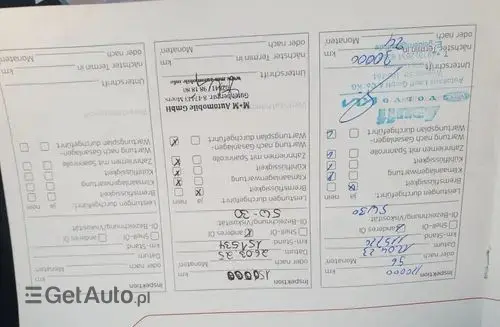 Inspektion
110000 km
oder nach 96 Monaten
Datum 12.04.23
km-Stand 115776
Shell-Öl anderes Öl
Öl-Bezeichnung/Viskosität
5W30
Leistungen durchgeführt: ja nein
Bremsflüssigkeit
Klimaanlagenwartung
Kühlflüssigkeit
Zahnriemen mit Spannrolle
Wartung nach Gasanlagen-
Wartungsplan durchgeführt
VOLVO
nächster Termin in 30000 km
oder nach 24 Monaten
Inspektion
150000 km
oder nach Monaten
Datum 26.03.25
km-Stand 151534
Shell-Öl anderes Öl
Öl-Bezeichnung/Viskosität
5W-30
Leistungen durchgeführt: ja nein
Bremsflüssigkeit
Klimaanlagenwartung
Kühlflüssigkeit
Zahnriemen mit Spannrolle
Wartung nach Gasanlagen-
Wartungsplan durchgeführt
M+M Automobile GmbH
Moers
Unterschrift
nächster Termin in km
oder nach Monaten
Inspektion
km
oder nach Monaten
Datum
km-Stand
Shell-Öl anderes Öl
Öl-Bezeichnung/Viskosität
Leistungen durchgeführt: ja nein
Bremsflüssigkeit
Klimaanlagenwartung
Kühlflüssigkeit
Zahnriemen mit Spannrolle
Wartung nach Gasanlagen-
Wartungsplan durchgeführt
Unterschrift
nächster Termin in km
oder nach Monaten
GetAuto.pl